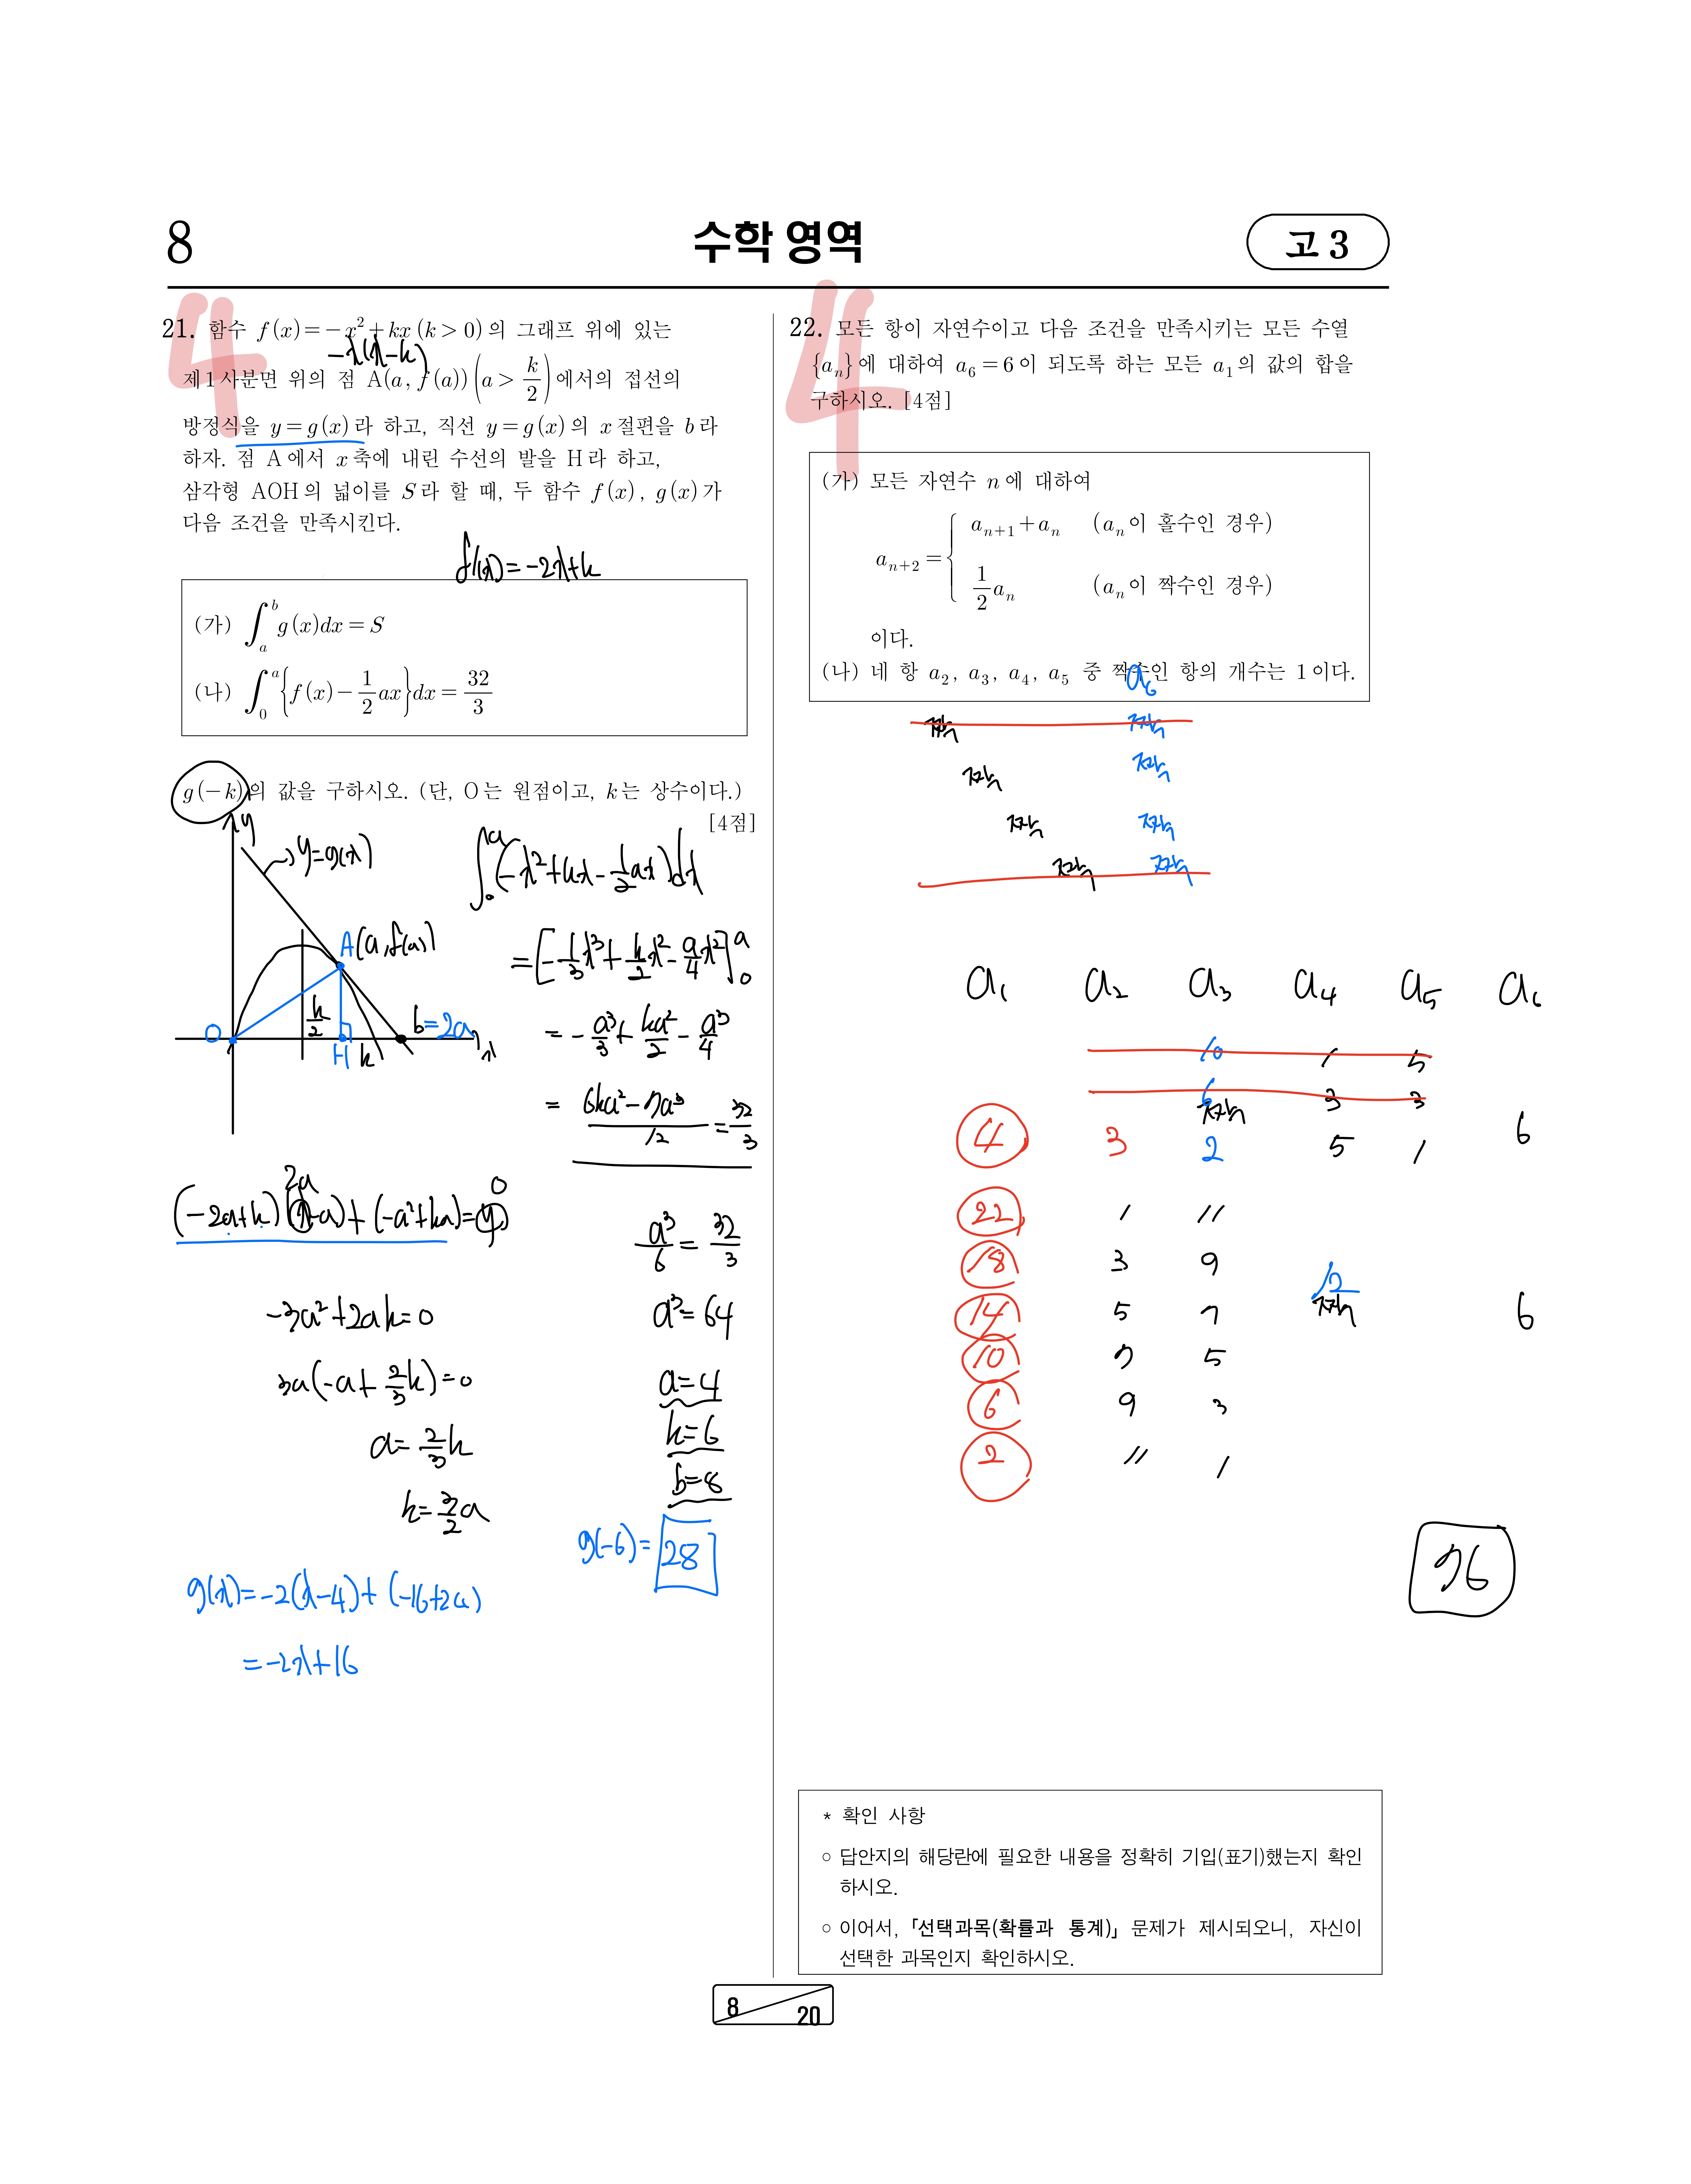 8
수학 영역
고 3
4
21. 함수 f(x)=-x²+kx (k>0)의 그래프 위에 있는
-x(x-k)
제1사분면 위의 점 A(a, f(a)) (a > k/2)에서의 접선의
방정식을 y=g(x)라 하고, 직선 y=g(x)의 x절편을 b라
하자. 점 A에서 x축에 내린 수선의 발을 H라 하고,
삼각형 AOH의 넓이를 S라 할 때, 두 함수 f(x), g(x)가
다음 조건을 만족시킨다.
f'(x)=-2x+k
(가) ∫_a^b g(x)dx = S
(나) ∫_0^a {f(x) - 1/2 ax}dx = 32/3
g(-k)의 값을 구하시오. (단, O는 원점이고, k는 상수이다.)
[4점]
y
y=g(x)
A(a, f(a))
O
k/2
H
k
b=2a
x
∫_0^a (-x²+kx-1/2 ax)dx
=[-1/3 x³+k/2 x²-a/4 x²]_0^a
= -a³/3 + ka²/2 - a³/4
= (6ka²-7a³)/12 = 32/3
2a
0
(-2a+k)(x-a)+(-a²+ka)=y
-3a²+2ak=0
3a(-a+2/3 k)=0
a=2/3 k
k=3/2 a
a³/6 = 32/3
a³=64
a=4
k=6
b=8
g(-6)=28
g(x)=-2(x-4)+(-16+24)
=-2x+16
4
22. 모든 항이 자연수이고 다음 조건을 만족시키는 모든 수열
{aₙ}에 대하여 a₆=6이 되도록 하는 모든 a₁의 값의 합을
구하시오. [4점]
(가) 모든 자연수 n에 대하여
aₙ₊₂ = { aₙ₊₁+aₙ (aₙ이 홀수인 경우)
1/2 aₙ (aₙ이 짝수인 경우)
이다.
(나) 네 항 a₂, a₃, a₄, a₅ 중 짝수인 항의 개수는 1이다.
a₆
짝 짝
짝 짝
짝 짝
짝 짝
a₁ a₂ a₃ a₄ a₅ a₆
10 1 5
6 3 3
짝
4 3 2 5 1 6
22 1 11
18 3 9
12
14 5 7 짝 6
10 7 5
6 9 3
2 11 1
76
* 확인 사항
○ 답안지의 해당란에 필요한 내용을 정확히 기입(표기)했는지 확인
하시오.
○ 이어서, 「선택과목(확률과 통계)」 문제가 제시되오니, 자신이
선택한 과목인지 확인하시오.
8
20